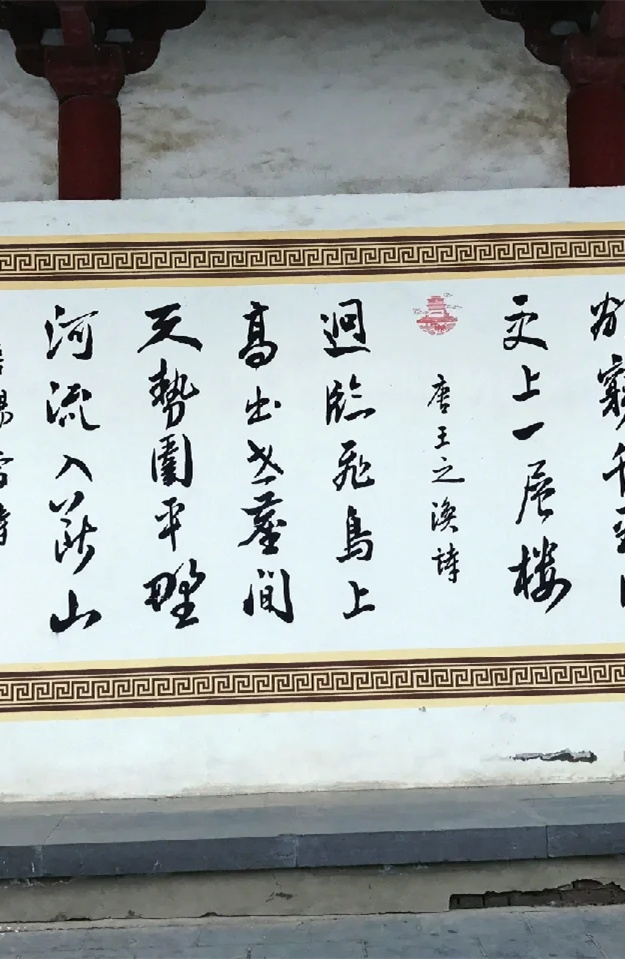 窮千里
更上一层楼
唐王之渙詩
迥臨飛鳥上
高出世塵間
天勢圍平野
河流入斷山